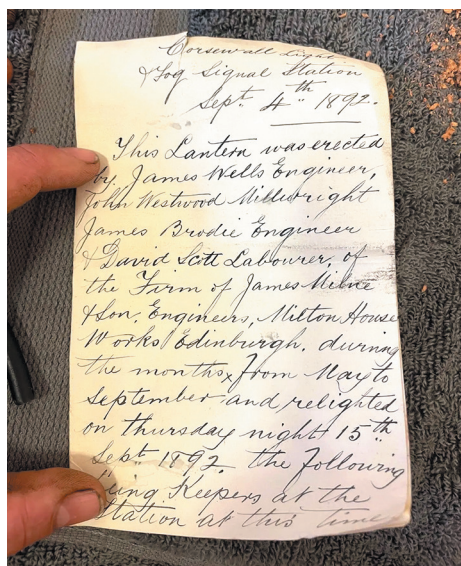 Corsewall Light
& Fog Signal Station
Sept. 4th 1892.
This Lantern was erected
by James Wells Engineer,
John Westwood Millwright
James Brodie Engineer
& David Scott Labourer, of
the Firm of James Milne
& Son, Engineers, Milton House
Works Edinburgh. during
the months from May to
September and relighted
on Thursday night 15th
Sept. 1892. the following
being Keepers at the
Station at this time